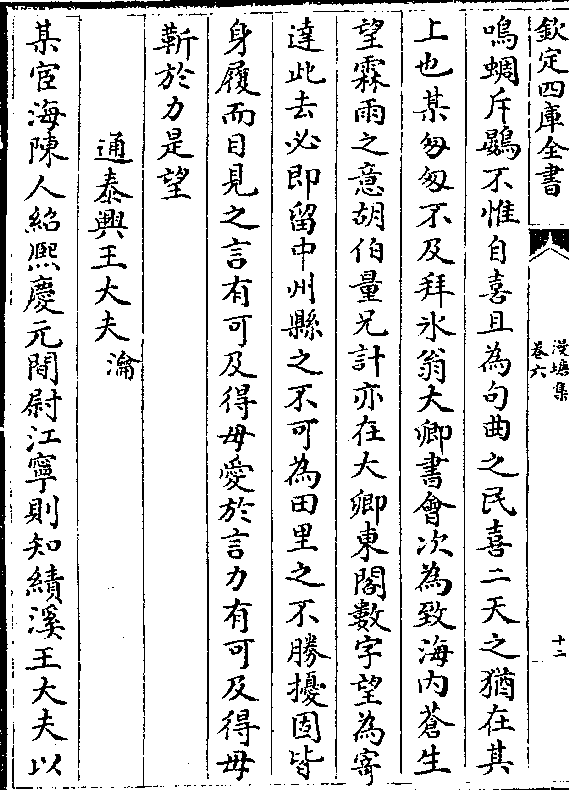 欽定四庫全書
漫塘集
卷六
十二
鳴蜩斥鷃不惟自喜且為句曲之民喜二天之猶在其
上也某匆匆不及拜氷翁大卿書會次為致海内蒼生
望霖雨之意胡伯量兄計亦在大卿東閤數字望為寄
達此去必即留中州縣之不可為田里之不勝擾固皆
身履而目見之言有可及得毋愛於言力有可及得毋
靳於力是望
通泰興王大夫瀹
某宦海陳人紹熈慶元間尉江寧則知績溪王大夫以